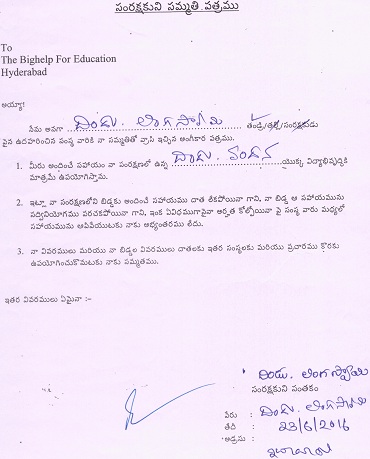 సంరక్షకుని సమ్మతి పత్రము
To
The Bighelp For Education
Hyderabad
అయ్యా!
మేము అనగా దిండు. లింగస్వామి తండ్రి/తల్లి/సంరక్షకుడు
పైన ఉదహరించిన సంస్థ వారికి నా సమ్మతితో వ్రాసి ఇచ్చిన అంగీకార పత్రము.
1. మీరు అందించే సహాయం నా సంరక్షణలో ఉన్న దిండు. వందన యొక్క విద్యాభివృద్ధికి
మాత్రమే ఉపయోగిస్తాము.
2. ఇట్లా నా సంరక్షణలోని బిడ్డకు అందించే సహాయము దాత లేకపోయినా గాని, నా బిడ్డ ఆ సహాయమును
సద్వినియోగము పరచకపోయినా గాని, ఇంక ఏవిధముగానైనా అర్హత కోల్పోయినా పై సంస్థ వారు మధ్యలో
సహాయమును ఆపివేయుటకు నాకు అభ్యంతరము లేదు.
3. నా వివరములు మరియు నా బిడ్డల వివరములు దాతలకు ఇతర సంస్థలకు మరియు ప్రచారము కొరకు
ఉపయోగించుకొనుటకు నాకు సమ్మతము.
ఇతర వివరములు ఏమైనా :-
దిండు. లింగస్వామి
సంరక్షకుని సంతకం
పేరు : దిండు. లింగస్వామి
తేది : 23/6/2016
అడ్రసు :